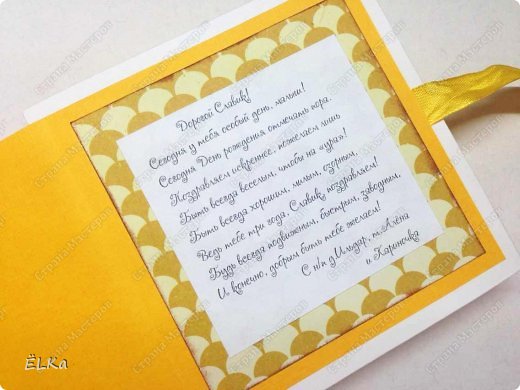 Дорогой Славик!
Сегодня у тебя особый день, малыш!
Сегодня День рождения отмечать пора.
Поздравляем искреннее, пожелаем лишь
Быть всегда веселым, чтобы на «ура»!
Быть всегда хорошим, милым, озорным,
Ведь тебе три года, Славик, поздравляем!
Будь всегда подвижным, быстрым, заводным,
И, конечно, добрым быть тебе желаем!
С н/п д.Ильдар, т.Алёна
и Кариночка
ЁLKa
Страна Мастеров